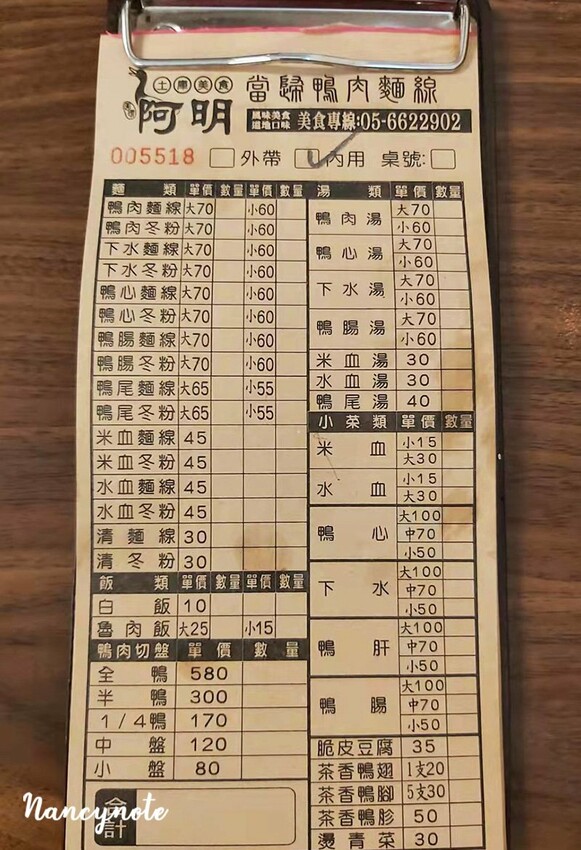 土庫美食
美食
阿明
當歸鴨肉麵線
風味美食
道地口味
美食專線:05-6622902
005518 外帶 內用 桌號:
麵類 單價 數量 單價 數量
鴨肉麵線 大70 小60
鴨肉冬粉 大70 小60
下水麵線 大70 小60
下水冬粉 大70 小60
鴨心麵線 大70 小60
鴨心冬粉 大70 小60
鴨腸麵線 大70 小60
鴨腸冬粉 大70 小60
鴨尾麵線 大65 小55
鴨尾冬粉 大65 小55
米血麵線 45
米血冬粉 45
水血麵線 45
水血冬粉 45
清麵線 30
清冬粉 30
飯類 單價 數量 單價 數量
白飯 10
魯肉飯 大25 小15
鴨肉切盤 單價 數量
全鴨 580
半鴨 300
1/4鴨 170
中盤 120
小盤 80
合計
湯類 單價 數量
鴨肉湯 大70
小60
鴨心湯 大70
小60
下水湯 大70
小60
鴨腸湯 大70
小60
米血湯 30
水血湯 30
鴨尾湯 40
小菜類 單價 數量
米血 小15
大30
水血 小15
大30
鴨心 大100
中70
小50
下水 大100
中70
小50
鴨肝 大100
中70
小50
鴨腸 大100
中70
小50
脆皮豆腐 35
茶香鴨翅 1支20
茶香鴨腳 5支30
茶香鴨胗 50
燙青菜 30
Nancynote